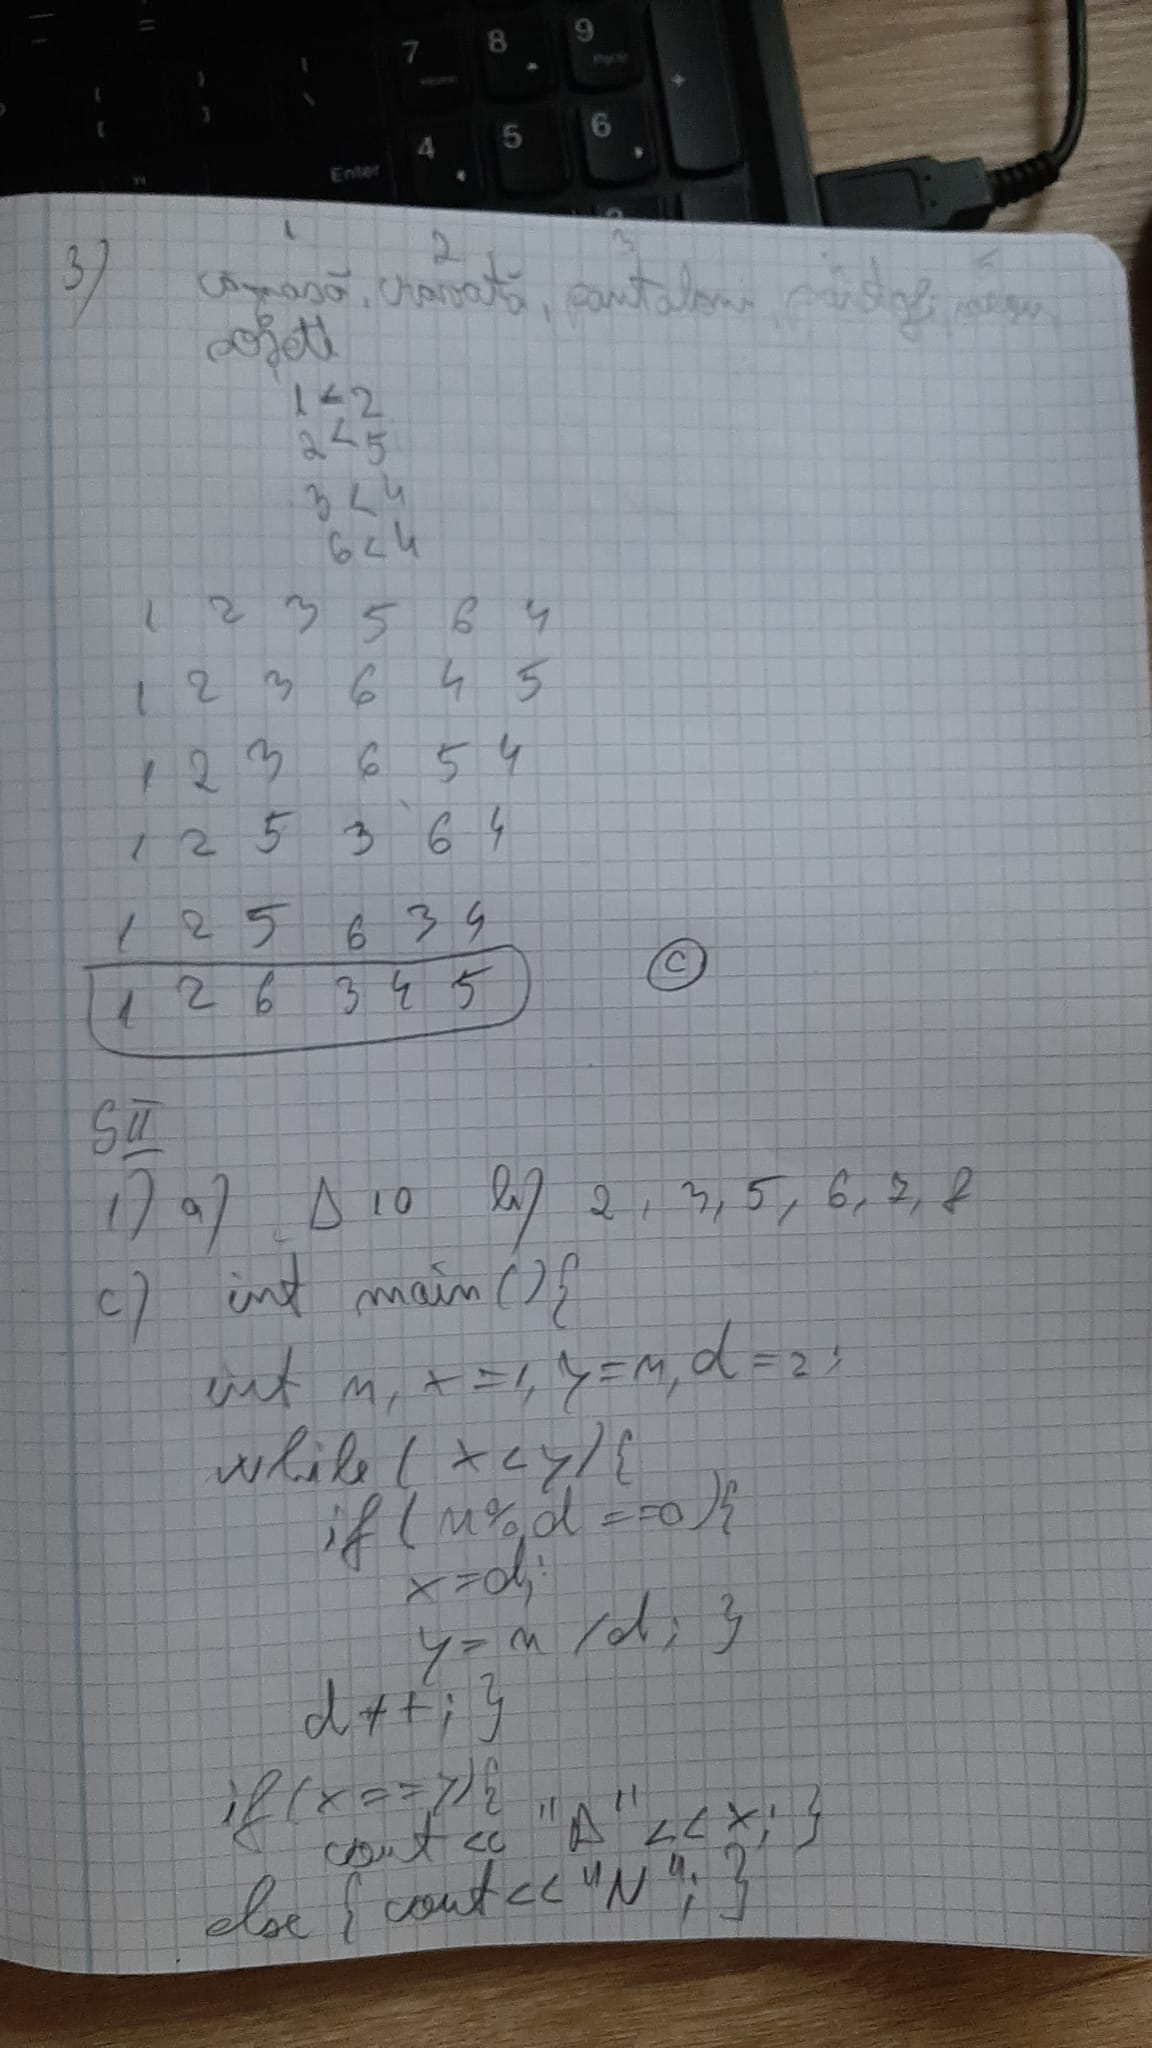 7 8 9
Home
4 5 6
Enter
3) 1 2 3
cămașă, cravată, pantaloni, pantofi,
șosete
1 < 2
2 < 5
3 < 4
6 < 4
1 2 3 5 6 4
1 2 3 6 4 5
1 2 3 6 5 4
1 2 5 3 6 4
1 2 5 6 3 4
1 2 6 3 4 5 c
S II
1) a) D 10 b) 2, 3, 5, 6, 7, 8
c) int main(){
int n, x=1, y=n, d=2;
while ( x<y){
if ( n%d==0){
x=d;
y=n/d; }
d++; }
if(x==y){
cout<< "D"<<x; }
else { cout<<"N"; }